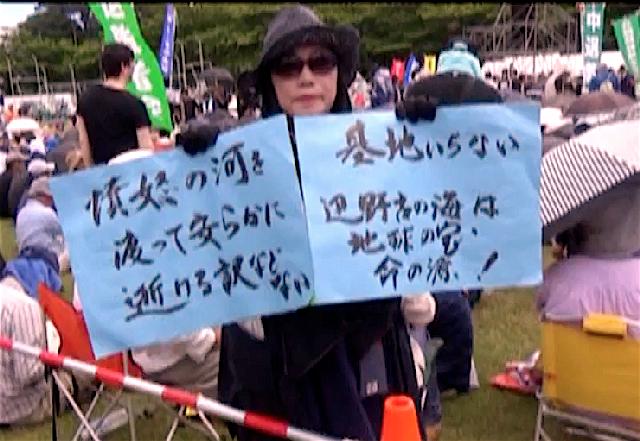 憤怒の河を
渡って安らかに
逝ける訳など
ない
基地いらない
辺野古の海は
地球の宝、
命の源！